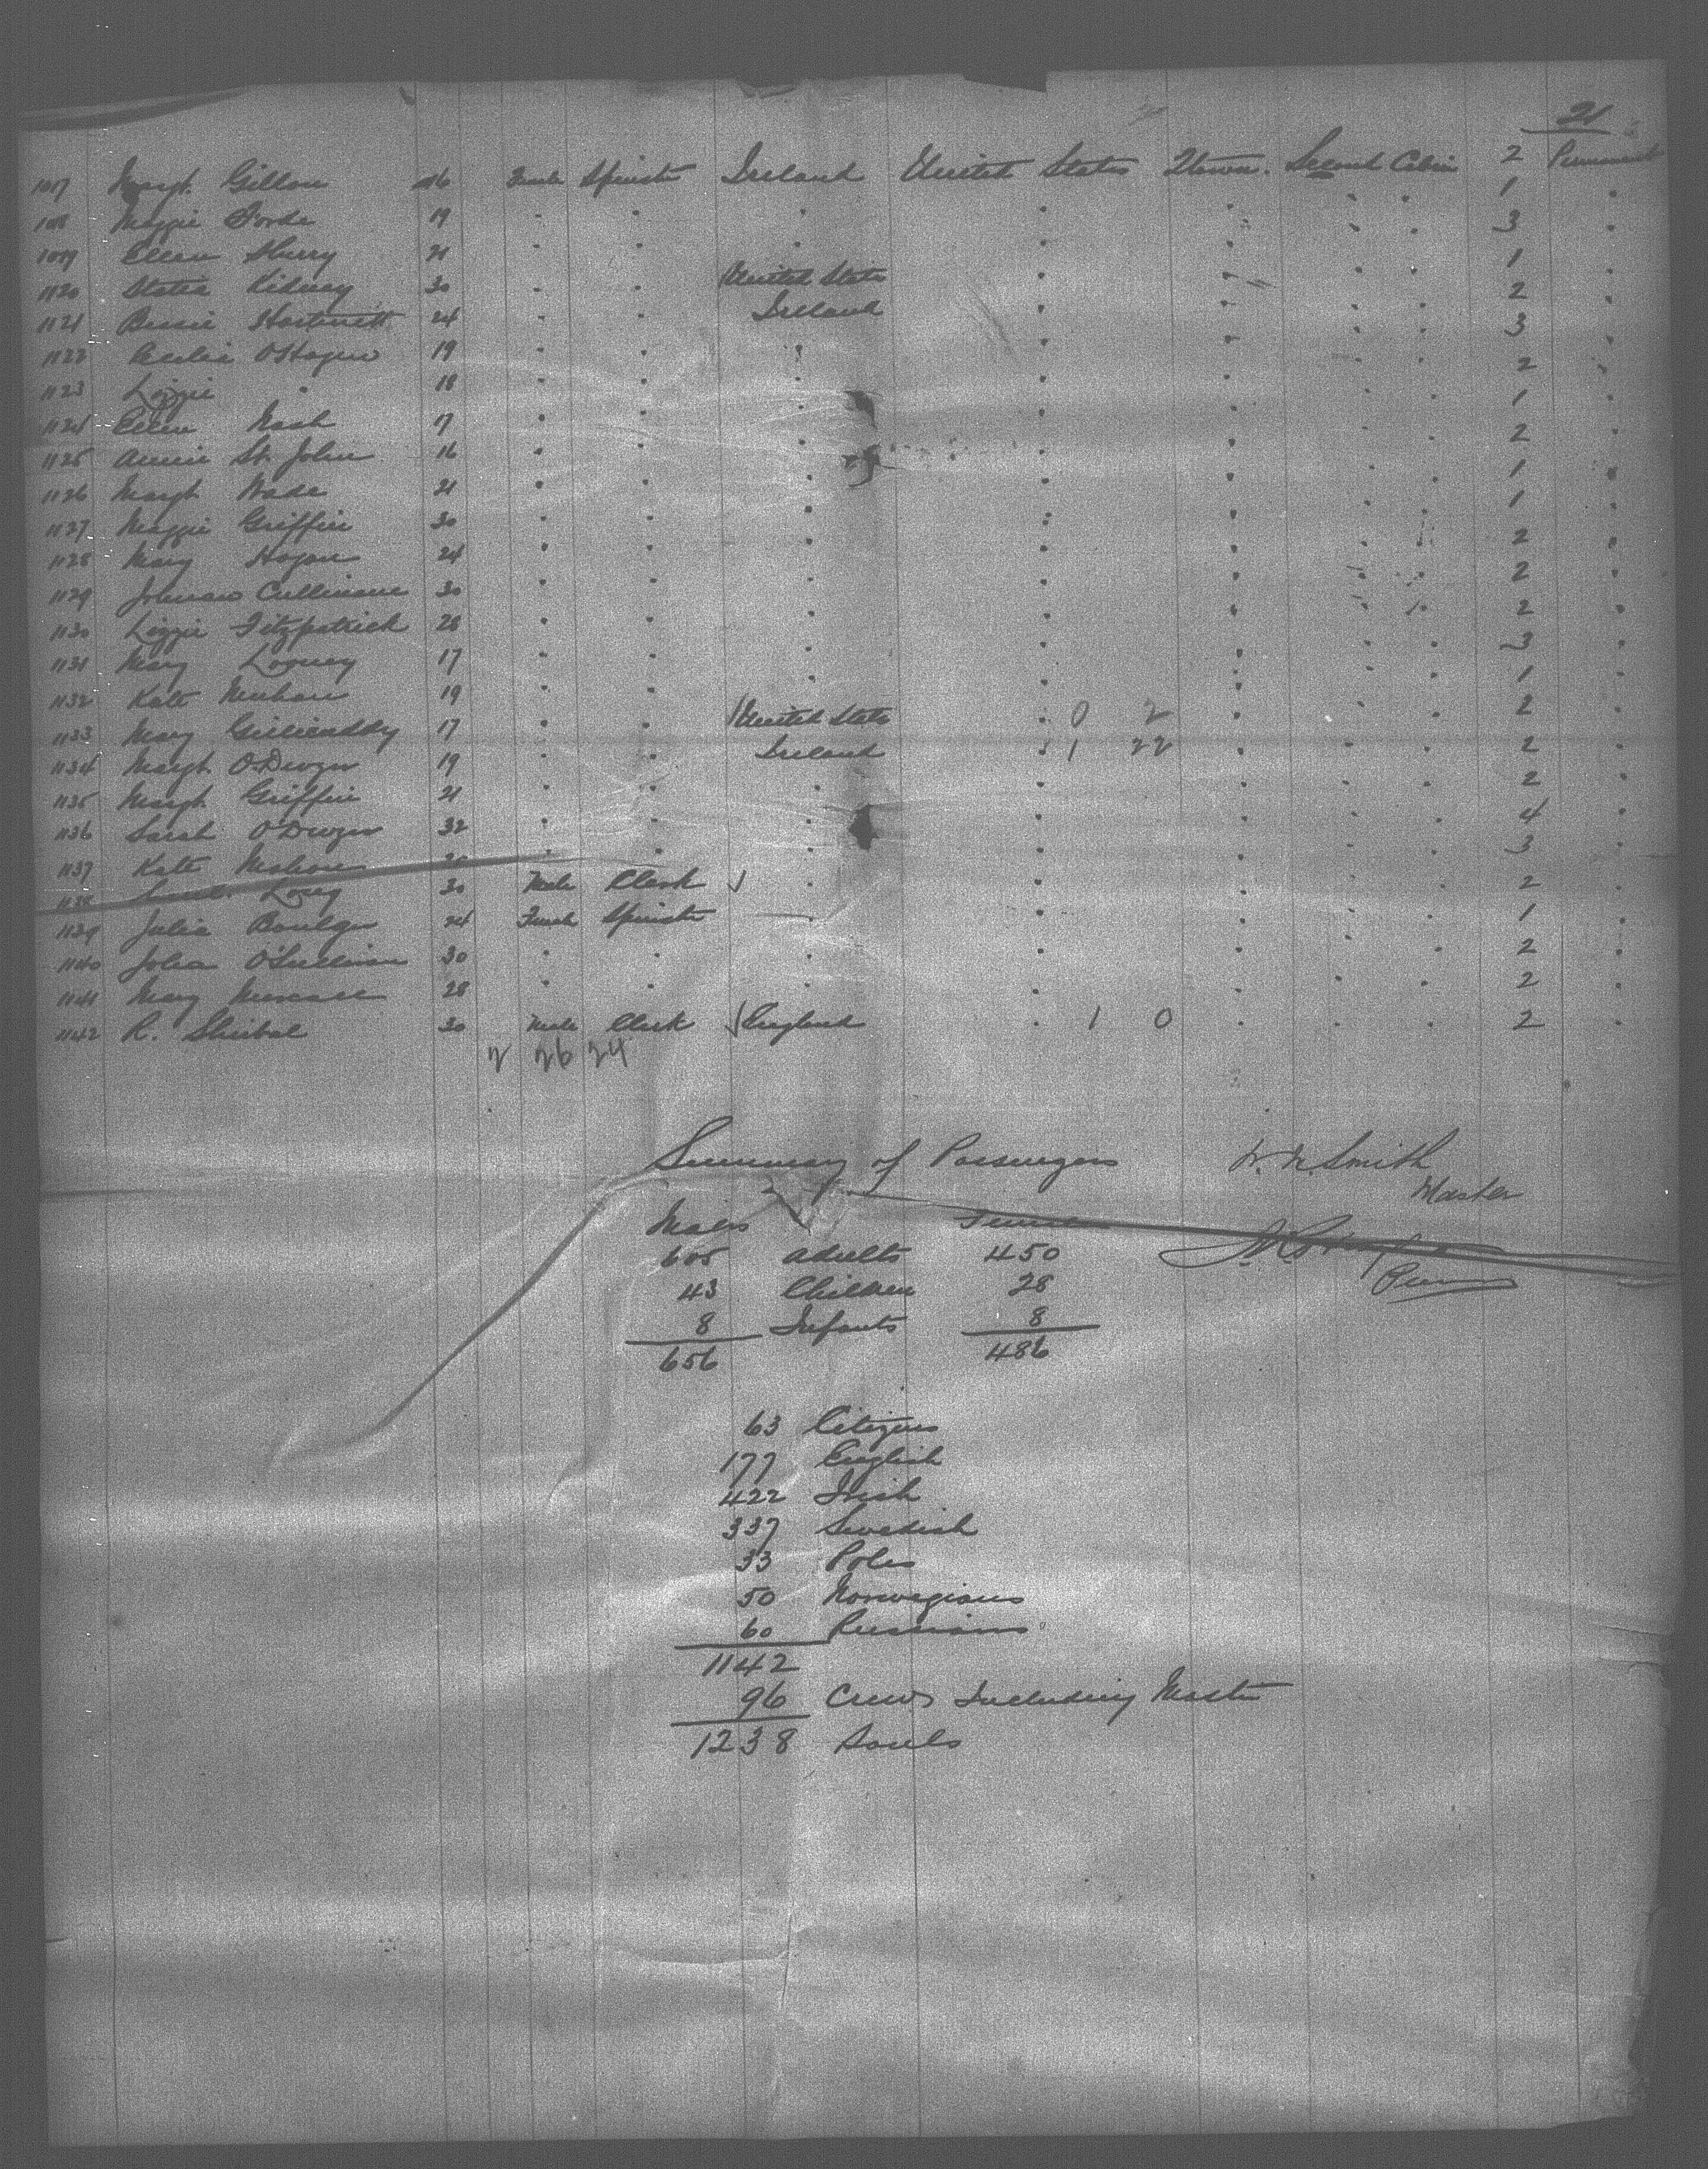 21
1117 Margt. Gillon 16 Female Spinster Ireland United States Qtown. Second Cabin 2 Permanent
1118 Maggie Forde 19 " " " " " " " 1 "
1119 Ellen Sherry 21 " " " " " " " 3 "
1120 Statia Kidney 30 " " United States " " " " 1 "
1121 Bessie Hartnett 24 " " Ireland " " " " 2 "
1122 Cecelia O'Hagan 19 " " " " " " " 3 "
1123 Lizzie " 18 " " " " " " " 2 "
1124 Ellen Nash 17 " " " " " " " 1 "
1125 Annie St. John 16 " " " " " " " 2 "
1126 Margt Wade 21 " " " " " " " 1 "
1127 Maggie Griffin 30 " " " " " " " 1 "
1128 Mary Hogan 24 " " " " " " " 2 "
1129 Cullinane 30 " " " " " " " 2 "
1130 Lizzie Fitzpatrick 28 " " " " " " " 2 "
1131 Mary Looney 17 " " " " " " " 3 "
1132 Kate Meehan 19 " " " " " " " 1 "
1133 Mary 17 " " United States " 0 2 " " " 2 "
1134 Margt. O'Dwyer 19 " " Ireland " 1 22 " " " 2 "
1135 Margt. Griffin 21 " " " " " " " 2 "
1136 Sarah O'Dwyer 32 " " " " " " " 4 "
1137 Kate Mahon " " " " " " " 3 "
1138 30 Male Clerk " " " " " 2 "
1139 Julia Boulger 24 Female Spinster " " " " " 1 "
1140 Julia O'Sullivan 30 " " " " " " " 2 "
1141 Mary 28 " " " " " " " 2 "
1142 R. 30 Male Clerk England " 1 0 " " " 2 "
2 26 24
Summary of Passengers
W. M Smith
Master
Males Females
605 Adults 450
43 Children 28
Purser
8 Infants 8
656 486
63 Citizens
177 English
422 Irish
337 Swedish
33 Poles
50 Norwegians
60 Russians
1142
96 Crew Including Master
1238 Souls